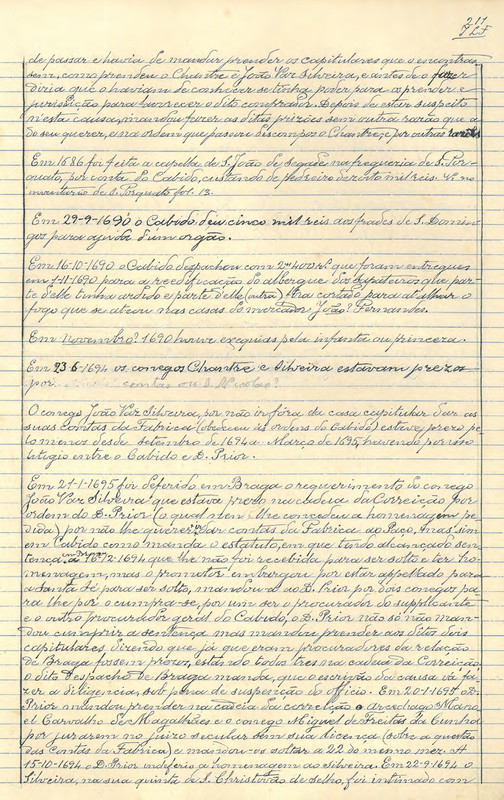 211
de passar e havia de mandar prender os capitulares que o encontras
sem, como prendeu o Chantre e João Vaz Silveira, e antes de o fazer
diria que o haviam de conhecer se tinha poder para os prender e
jurisdicção para Depois de estar suspeito
n'esta causa, mandou fazer as ditas prizões sem outra razão que a
do seu querer, e na ordem que passou descompoz o Chantre, e por outras razões
Em 1686 foi feita a capella de S. João de Segade na freguezia de S. Tor-
quato, por conta do Cabido, custando de pedreiro dezoito mil reis. V. no
inventario de S. Torquato fol. 13.
Em 29-9-1690 o Cabido deu cinco mil reis aos frades de S. Domin-
gos para ajuda d'um orgão.
Em 16-10-1690 o Cabido despachou com 2400 rs. que foram entregues
em 1-11-1690 para a reedificação do albergue dos sapateiros que par-
te d'elle tinha ardido e parte d'elle (outra) fôra cortado para atalhar o
fogo que se ateou nas casas do mercador João Fernandes.
Em Novembro? 1690 houve exequias pela infanta ou princeza.
Em 23-6-1694 os conegos Chantre e Silveira estavam prezos
por contas ou S. Nicolau?
O conego João Vaz Silveira, por não ir fóra da casa capitular dar as
suas contas da Fabrica (obedecer ás ordens do Cabido) esteve prezo pe-
lo menos desde setembro de 1694 a Março de 1695, havendo por isso
litigio entre o Cabido e D. Prior.
Em 21-1-1695 foi deferido em Braga o requerimento do conego
João Vaz Silveira que estava prezo na cadeia da Correição por
ordem do D. Prior (o qual nem lhe concedeu a homenagem pe-
dida) por não lhe querer ir dar contas da Fabrica ao Paço, mas sim
em Cabido como manda o estatuto, em que tendo alcançado sen-
tença em Braga a 16-2-1694 que lhe não foi recebida para ser solto e ter ho-
menagem, mas o promotor embargou por estar appellado para
a Santa Sé para ser solto, mandou a ao D. Prior por dois conegos pa-
ra lhe pôr o cumpra-se, por um ser o procurador do supplicante
e o outro procurador geral do Cabido, o D. Prior não só não man-
dou cumprir a sentença mas mandou prender aos ditos dois
capitulares dizendo que já que eram procuradores da relação
de Braga fossem prezos, estando todos tres na cadeia da Correição
o dito despacho de Braga manda, que o escrivão da causa vá fa-
zer a diligencia, sob pena de suspenção do officio. Em 20-1-1695 o D.
Prior mandou prender na cadeia da correição o Arcediago Mano-
el Carvalho de Magalhães e o conego Miguel de Freitas da Cunha
por jurarem no juizo secular sem sua licença (sobre a questão
das Contas da Fabrica) e mandou-os soltar a 22 do mesmo mez. A
15-10-1694 o D. Prior indeferiu a homenagem ao Silveira. Em 22-9-1694 o
Silveira, na sua quinta de S. Christovão de Selho, foi intimado com